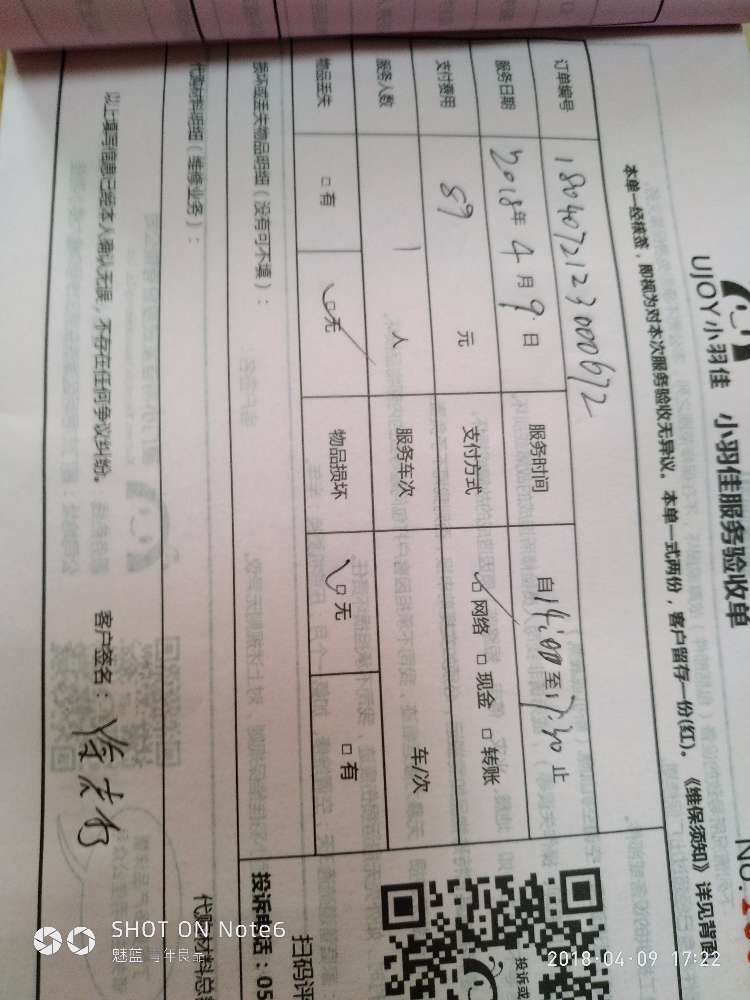 UJOY小羽佳 小羽佳服务验收单
No.
本单一经核签，即视为对本次服务验收无异议。本单一式两份，客户留存一份(红)。《维保须知》详见背面
订单编号 180407212300067​2
服务日期 2018年4月9日 服务时间 自14:00至17:30止
支付费用 89元 支付方式 □网络 □现金 □转账
服务人数 1人 服务车次 车/次
物品丢失 □有 □无 物品损坏 □无 □有
损坏或丢失物品明细（没有可不填）：
扫码评
投诉电话：05
投诉或
代购材料明细（维修业务）：
代购材料总
以上填写信息已经本人确认无误，不存在任何争议纠纷。 客户签名：
SHOT ON Note6
魅蓝 青年良品
2018-04-09 17:22